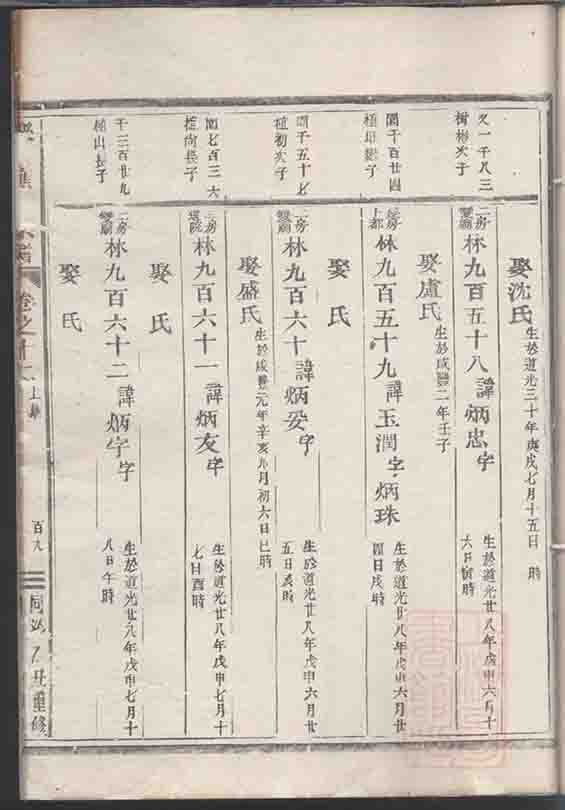 娶沈氏 生於道光三十年庚戌七月十五日 時
又一千八三
樹彬次子
二房
林九百五十八 諱炳忠 字
生於道光廿八年戊申六月十
六日寅時
娶盧氏 生於咸豐二年壬子
閏千百廿四
上都
林九百五十九 諱玉潤 字炳珠
生於道光廿八年戊申六月廿
四日戌時
娶 氏
閏千五十七
植初次子
二房
林九百六十 諱炳安 字
生於道光廿八年戊申六月廿
五日亥時
娶盛氏 生於咸豐元年辛亥九月初六日巳時
閏七百三六
植尚長子
林九百六十一 諱炳友 字
生於道光廿八年戊申七月十
七日酉時
娶 氏
千三百廿九
植山長子
二房
林九百六十二 諱炳字 字
生於道光廿八年戊申七月十
八日午時
娶 氏
卷之十二 上
百九
丁丑重修